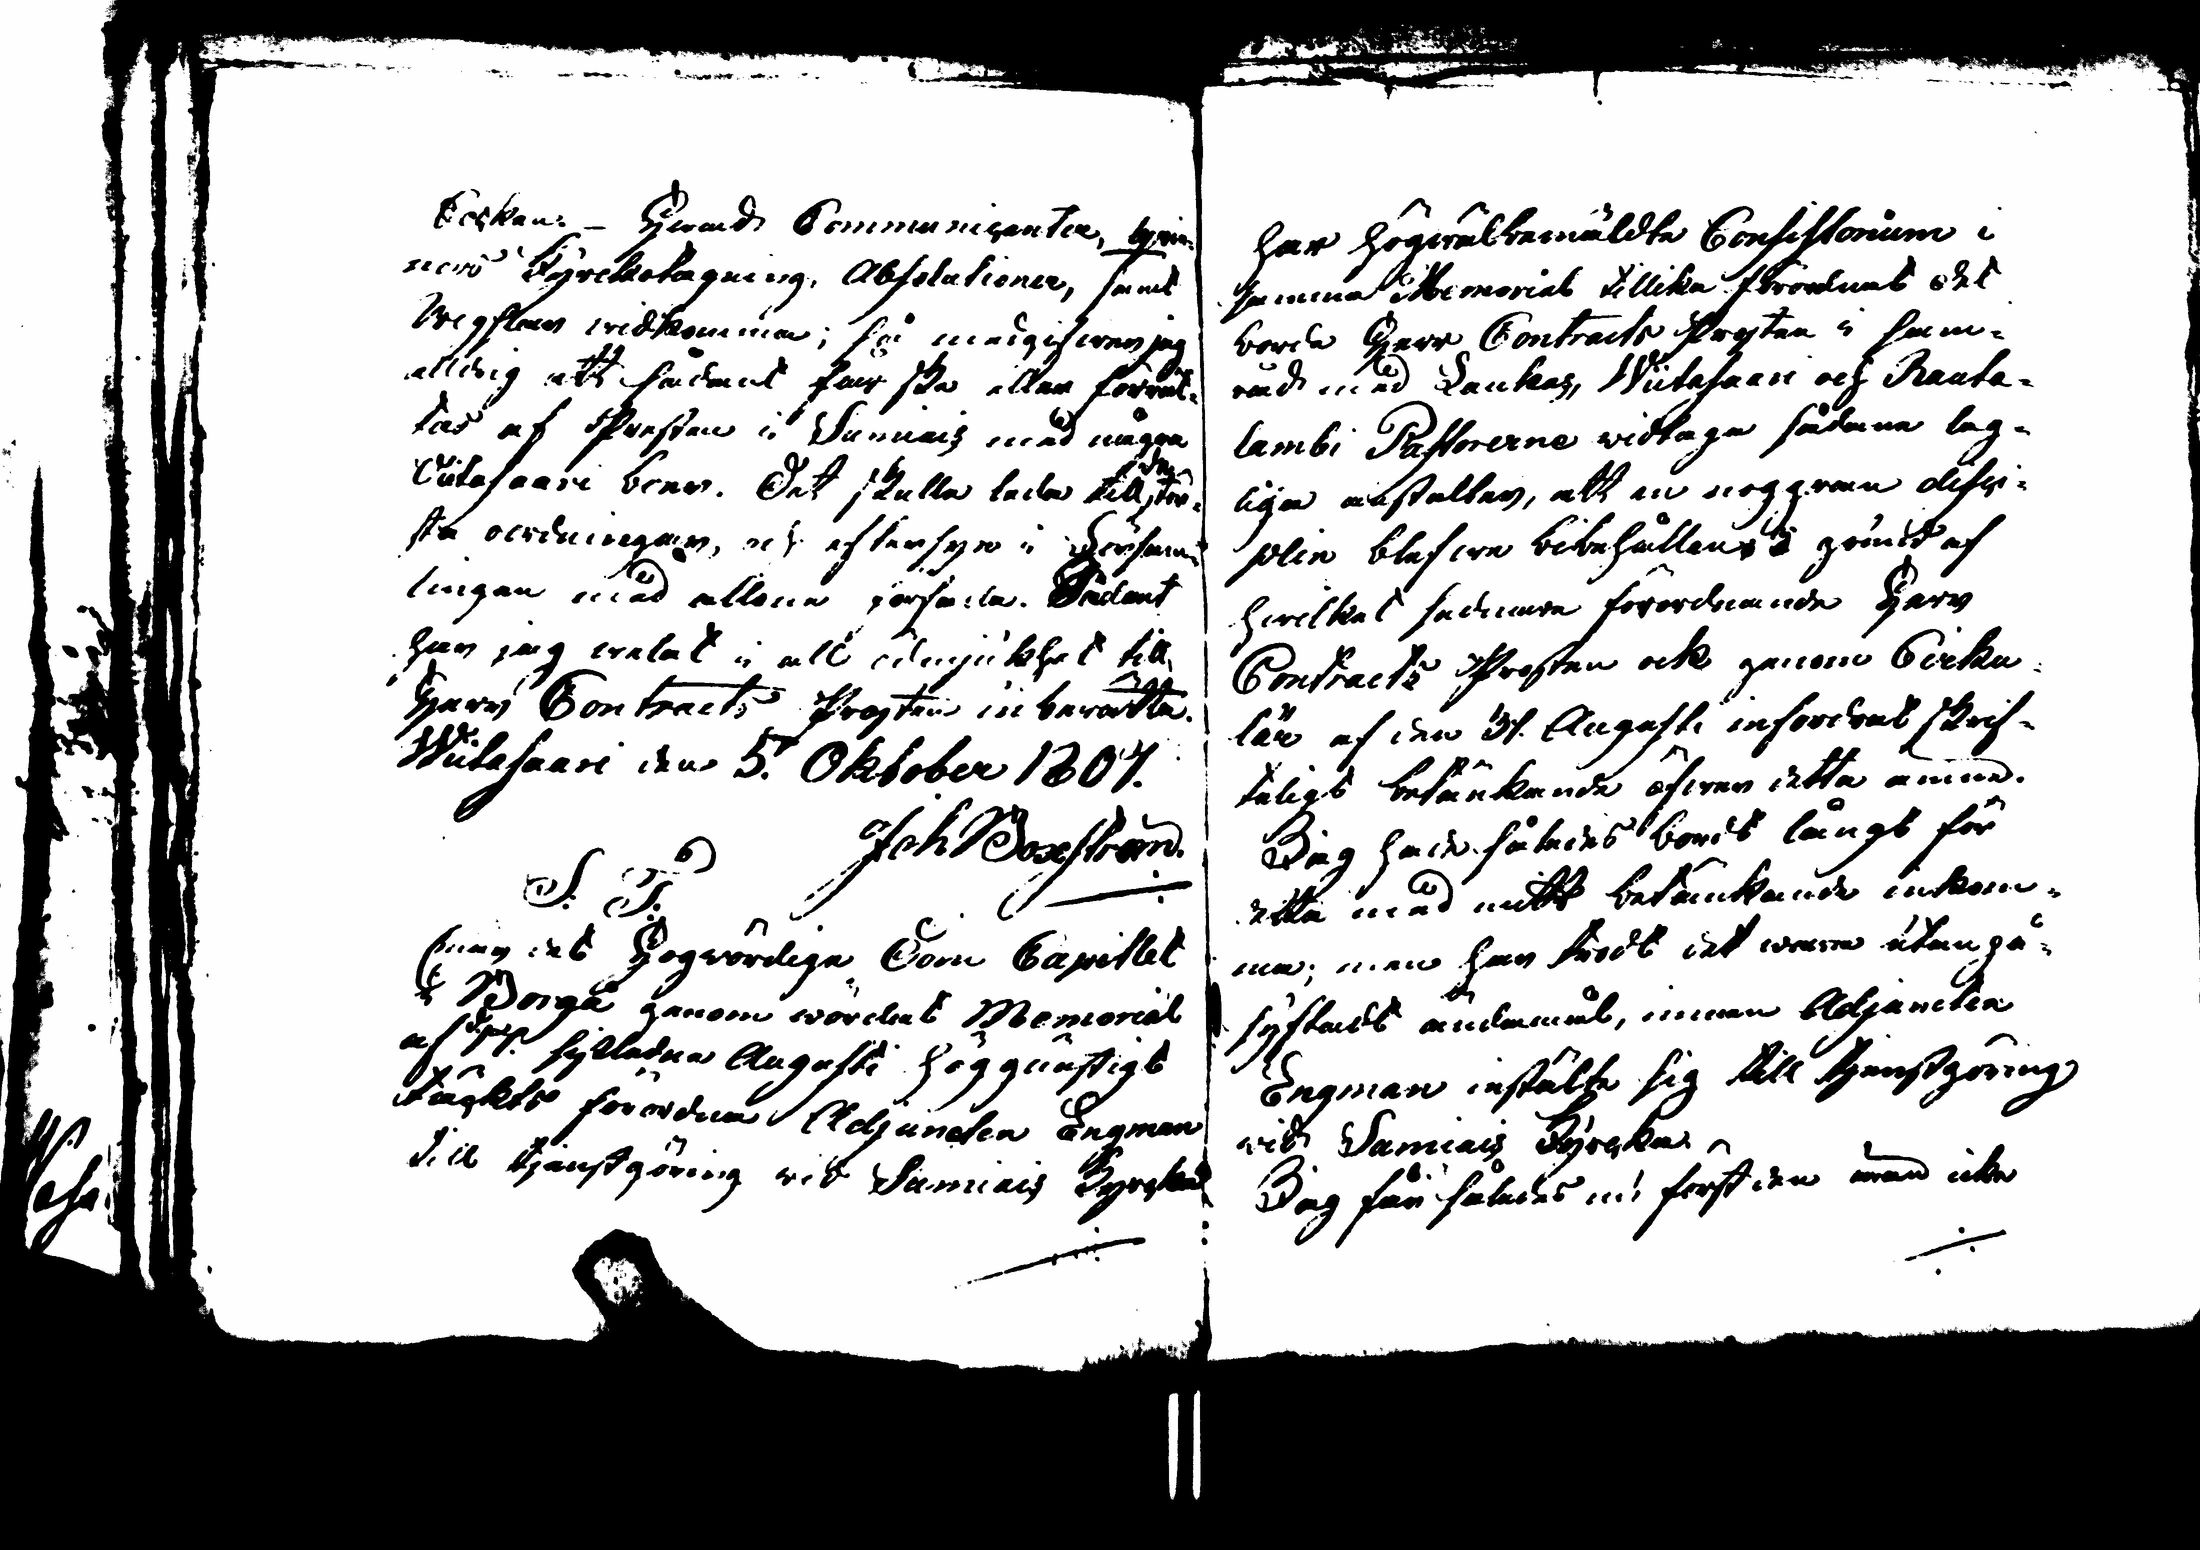 kyrkan. – Hwad Communicanter, hwin-
nors Kyrkotagning, Absolutioner, samt
Wigslar widkomma; så medgifwer jag
alldrig att sådant får ske eller förrät-
tas af Presten i Sumiais med några
Viitasaari boer. Det skulle leda till de stör-
sta oordningar, och eftersyn i Försam-
lingen med allone jorfade. Sådant
har jag welat i all ödmjukhet till
Herr Contracts Prosten inberätta.
Wiitasaari den 5. Oktober 1807.
Joh Boxström.
S. T.
Emedan det Högwördiga Dom Capitlet
i Borgå genom wördat Memorial
af sistledne Augusti höggunstigt
täckts förordna Adjuncten Engman
till tjenstgöring wid Sumiais Kyrka
har högwälbemäldte Consistorium i
samma Memorial tillika förordnat det
borde Herr Contracts Prosten i sam-
råd med Laukas, Wiitasaari och Rauta-
lambi Pastorerne widtaga sådana lag-
liga anstalter, att en noggran disci-
plin blefwe bibehållen; i grund af
hwilket sednare förordnande Herr
Contracts Prosten ock genom Cirku-
lär af den 31. Augusti infordrat skrif-
teligt betänkande öfwer detta ämne.
Jag hade således bordt långt för
detta med mitt betänkande inkom-
ma; men har trodt det wara utan på-
syftadt ändamål, innan Adjuncten
Engman instälte sig till tjenstgöring
wid Sumiais Kyrka.
Jag får således nu först den med icke